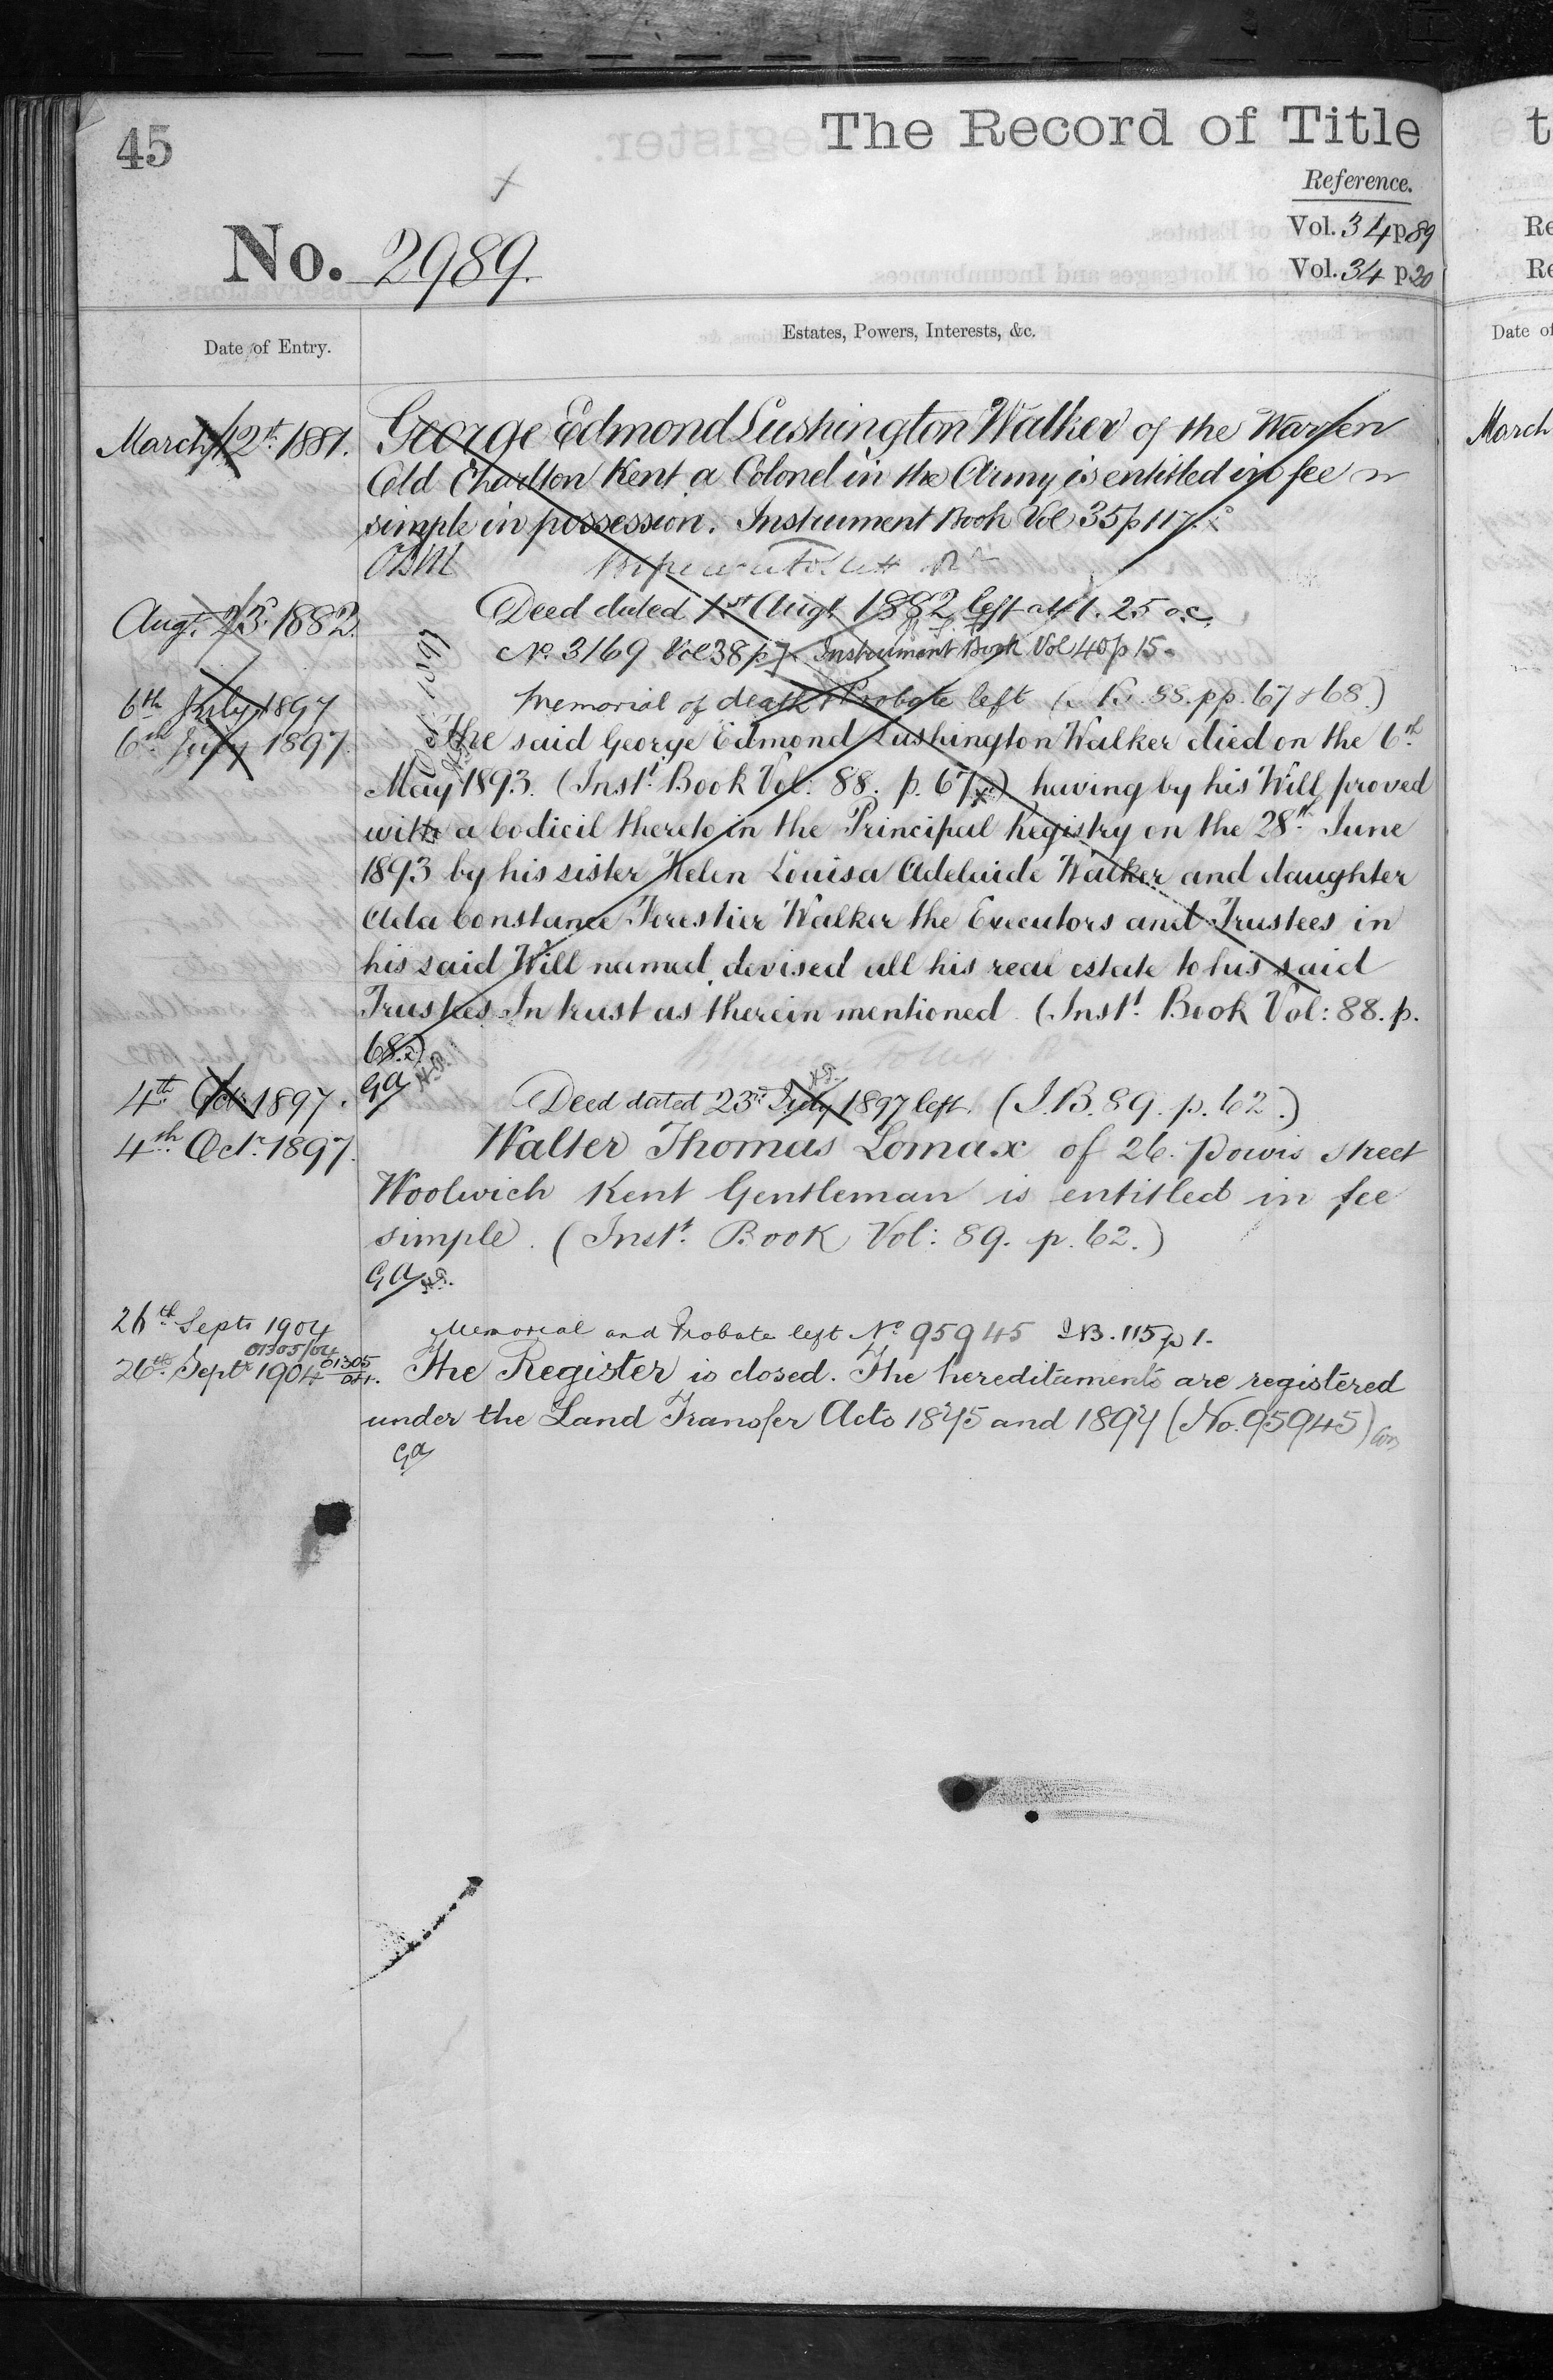 45
The Record of Title
Reference.
Vol. 34 p 89
Vol. 34 p 20
No. 2989.
Date of Entry.
Estates, Powers, Interests, &c.
March 12th 1881.
George Edmond Lushington Walker of the Warren
Old Charlton Kent a Colonel in the Army is entitled in fee
simple in possession. Instrument Book Vol 35 p 117.
Augt. 23. 1882.
Deed dated 1st Augt 1882 left at 1.25 o.c.
No. 3169 Vol 38 p 7 Instrument Book Vol 40 p 15.
6th July 1897
Memorial of death & Probate left (I.B. 88. pp. 67 & 68.)
6th July 1897.
The said George Edmond Lushington Walker died on the 6th
May 1893. (Inst. Book Vol: 88. p. 67.) having by his Will proved
with a Codicil thereto in the Principal Registry on the 28th June
1893 by his sister Helen Louisa Adelaide Walker and daughter
Ada Constance Forestier Walker the Executors and Trustees in
his said Will named, devised all his real estate to his said
Trustees In trust as therein mentioned. (Inst. Book Vol: 88. p.
68.)
GA
4th Oct. 1897.
Deed dated 23rd July 1897 left. (I.B. 89. p. 62.)
4th Oct. 1897.
Walter Thomas Lomax of 26. Powis Street
Woolwich Kent Gentleman is entitled in fee
simple. (Inst. Book Vol: 89. p. 62.)
GA
26th Septr 1904
01305/04
Memorial and Probate left No 95945 I.B. 115 p 1.
26th Septr 1904 01305/04.
The Register is closed. The hereditaments are registered
under the Land Transfer Acts 1875 and 1897 (No. 95945)
GA
t
Re
Re
Date of
March